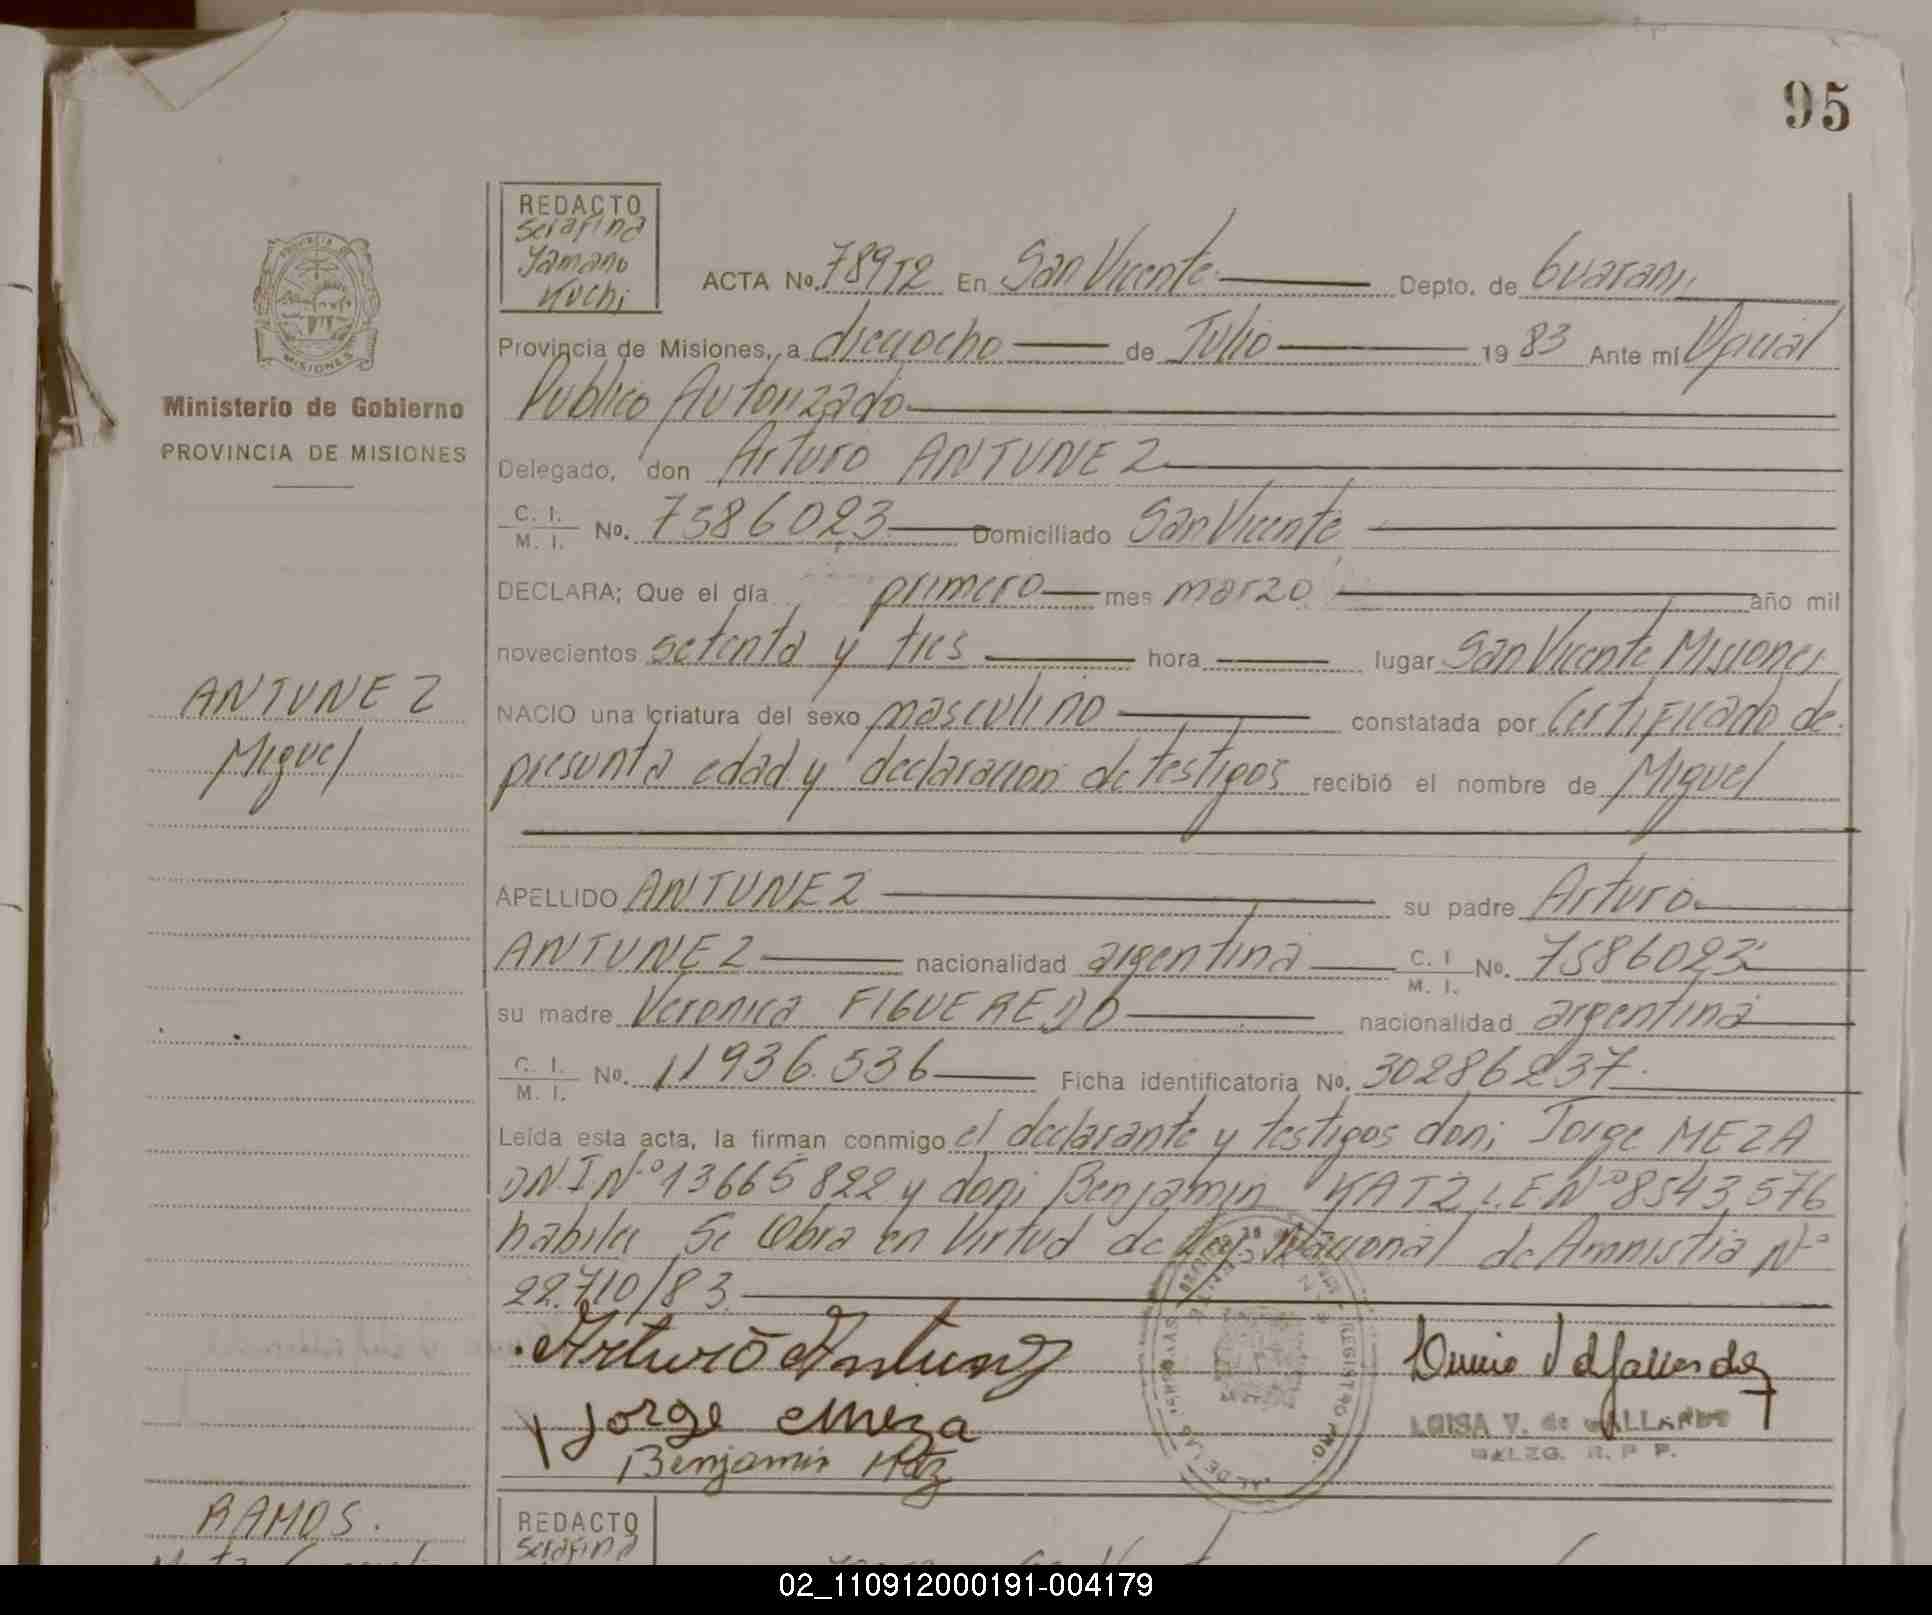 95
REDACTO
Serafina
Yamano
Kuchi
ACTA No. 789T2 En San Vicente Depto. de Guarani
Provincia de Misiones, a dieciocho de Julio 19 83 Ante mi Oficial
Publico Autorizado
Ministerio de Gobierno
PROVINCIA DE MISIONES
Delegado, don Arturo ANTUNEZ
C. I. M. I. No. 7586023 Domiciliado San Vicente
DECLARA; Que el día primero mes marzo año mil
novecientos setenta y tres hora lugar San Vicente Misiones
ANTUNEZ
Miguel
NACIO una criatura del sexo masculino constatada por Certificado de
presunta edad y declaracion de testigos recibió el nombre de Miguel
APELLIDO ANTUNEZ su padre Arturo
ANTUNEZ nacionalidad argentina C. I. M. I. No. 7586023
su madre Veronica FIGUEREDO nacionalidad argentina
C. I. M. I. No. 11936.536 Ficha identificatoria No. 30286237
Leída esta acta, la firman conmigo el declarante y testigos don; Jorge MEZA
DNI Nº 13665822 y don; Benjamin KATZ L.E Nº 8543.576
habiles Se Obra en Virtud de Ley Nacional de Amnistia Nº
22.710/83.
Arturo Antunez
Jorge Meza
Benjamin
LUISA V. de GALLARDO
R. P P.
REGISTRO PRO.
DE LAS
RAMOS.
REDACTO
Serafina
02_110912000191-004179